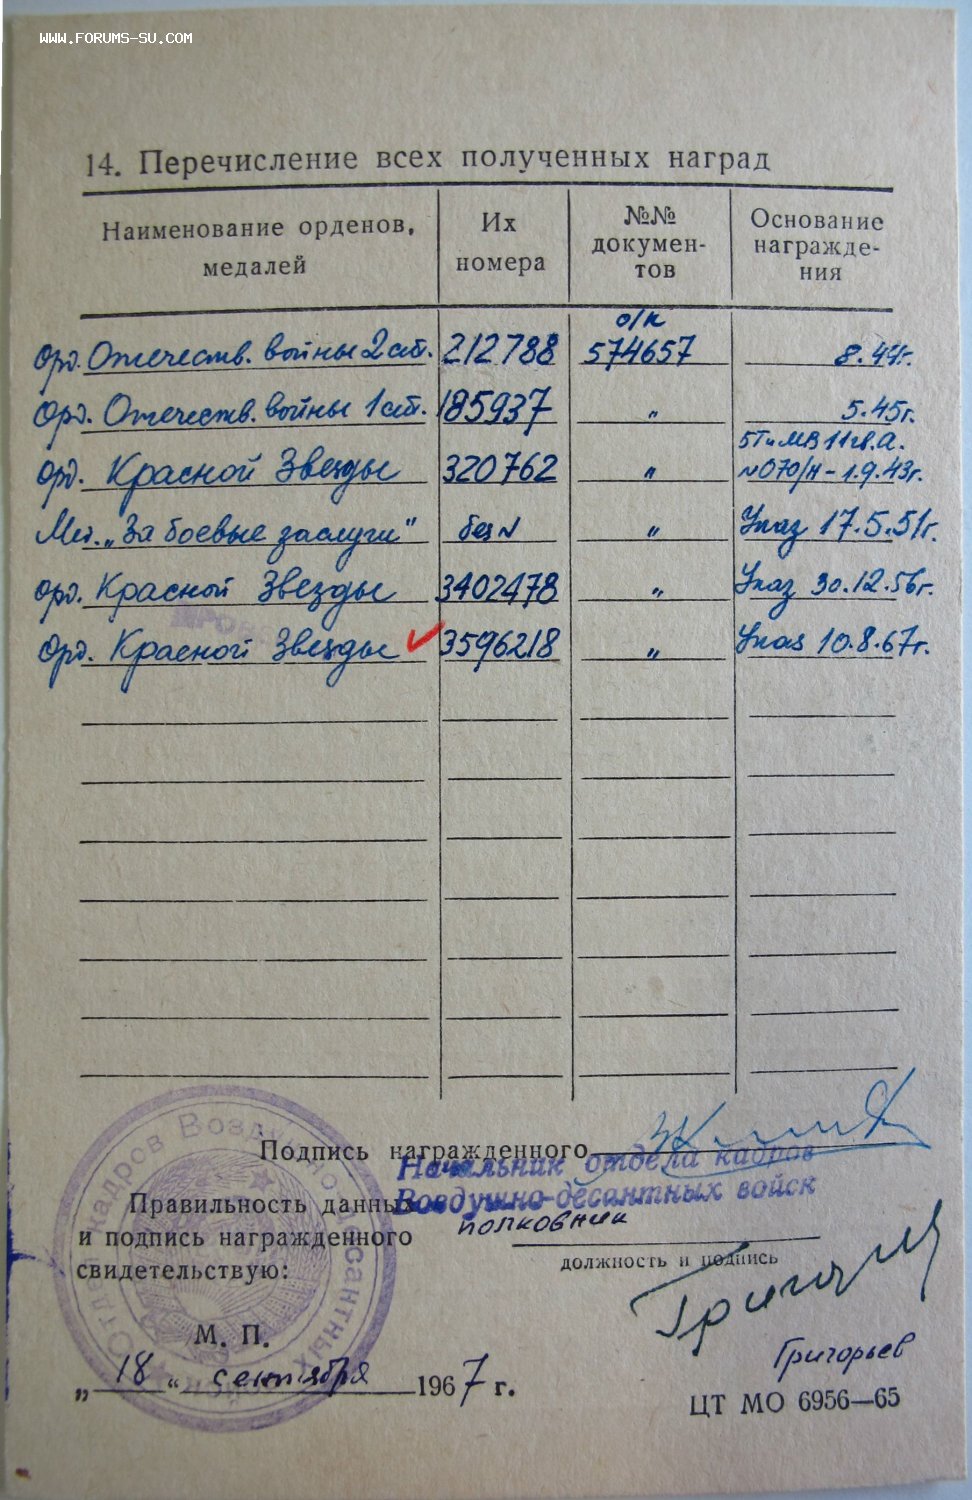 www.forums-su.com
14. Перечисление всех полученных наград
Наименование орденов, медалей
Их номера
№№ документов
Основание награждения
о/к
Орд. Отечеств. войны 2 ст. 212788 574657 8.44г.
Орд. Отечеств. войны 1 ст. 185937 " 5.45г.
5Ти МВ 11 гв.А.
Орд. Красной Звезды 320762 " №070/н - 1.9.43г.
Мед. „За боевые заслуги" без № " Указ 17.5.51г.
орд. Красной Звезды 3402478 " Указ 30.12.56г.
Орд. Красной Звезды 3596218 " Указ 10.8.67г.
Подпись награжденного
Начальник отдела кадров
Воздушно-десантных войск
Правильность данных
полковник
и подпись награжденного
должность и подпись
свидетельствую:
Отдел кадров Воздушно-десантных войск
М. П.
Григорьев
„18" сентября 1967 г.
ЦТ МО 6956—65